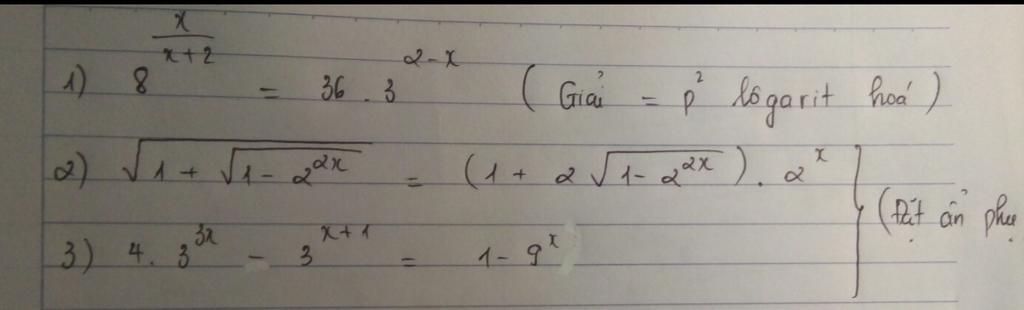 1) 8^(x/(x+2)) = 36 . 3^(2-x) ( Giải = p² lôgarit hoá )
2) √(1 + √(1 - 2^(2x))) = (1 + 2√(1 - 2^(2x))) . 2^x
3) 4. 3^(3x) - 3^(x+1) = 1 - 9^x
(Đặt ẩn phụ